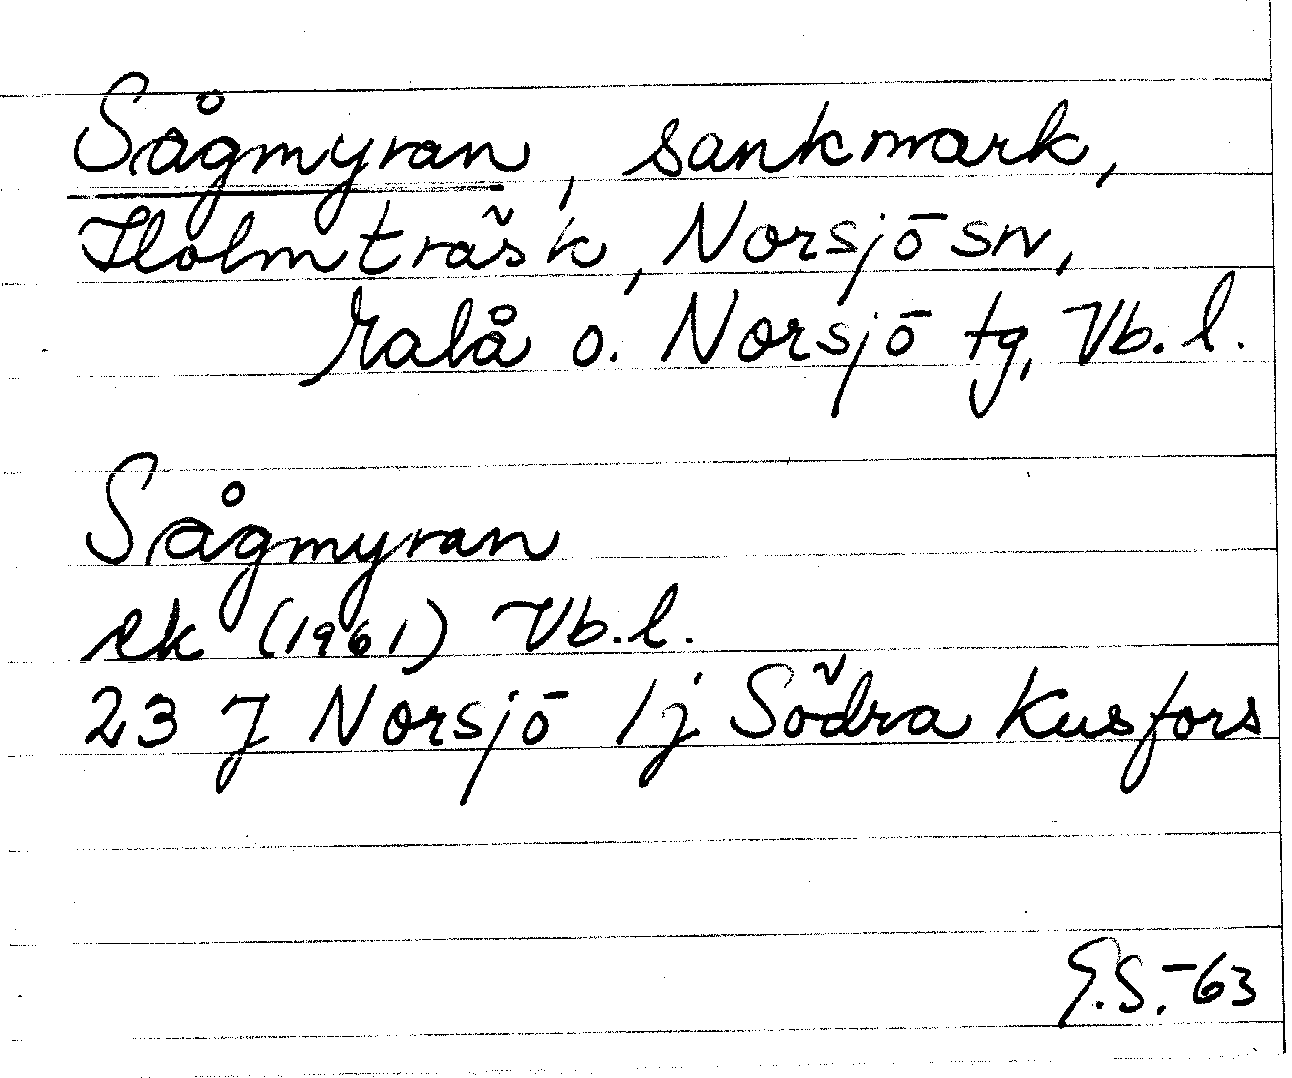 Sågmyran, sankmark,
Holmträsk, Norsjö sn,
Malå o. Norsjö tg, Vb. l.
Sågmyran
ek (1961) Vb. l.
23 J Norsjö 1j Södra Kusfors
G.S. -63